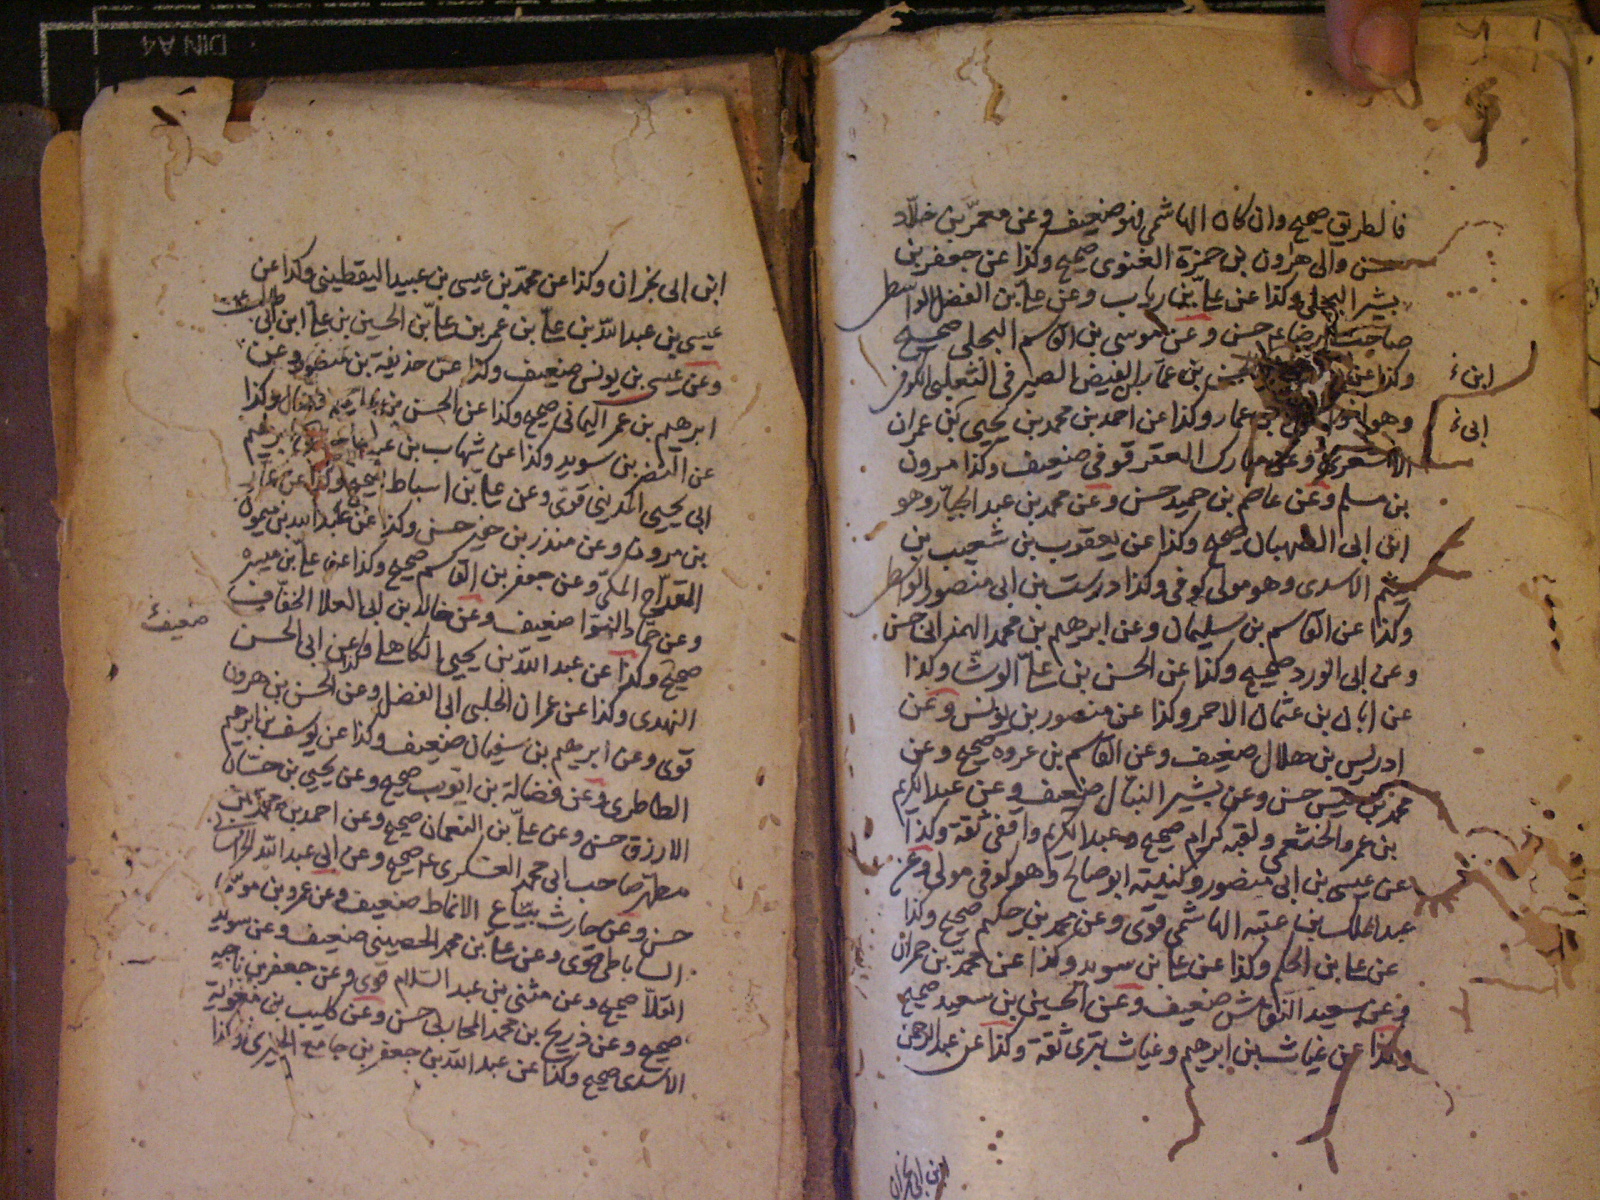 فالطريق صحيح وان كان الهاشمي فهو ضعيف وعن معمر بن خلاد
حسن والى هرون بن حمزة الغنوى صحيح وكذا عن جعفر بن
بشير البجلي وكذا عن علي بن رياب وعن علي بن الفضل الواسطي
صاحب الرضا ع حسن وعن موسى بن القاسم البجلي صحيح
وكذا عن الحسن بن عمار الفيض الصيرفي الثعلبي الكوفي
وهو اخو بن عمار وكذا عن احمد بن محمد بن يحيى بن عمران
الاشعري وعن مبارك العقرقوفي ضعيف وكذا مرون
بن مسلم وعن عاصم بن حميد حسن وعن محمد بن عبد الجبار وهو
ابن ابى الصهبان صحيح وكذا عن يعقوب بن شعيب بن
ميثم الاسدى وهو مولى كوفى وكذا درست بن ابى منصور الواسطي
وكذا عن القاسم بن سليمان وعن ابرهيم بن محمد الهمدانى حسن
وعن ابى الورد صحيح وكذا عن الحسن بن علي الوشا وكذا
عن ابان بن عثمان الاحمر وكذا عن منصور بن يونس وعن
ادريس بن هلال ضعيف وعن القاسم بن عروه صحيح وعن
محمد بن قيس حسن وعن بشير النبال ضعيف وعن عبد الكريم
بن عمرو الخثعمي ولقبه كرام صحيح وعبد الكريم واقفى ثقة وكذا
عن عيسى بن ابى منصور وكنيته ابو صالح وهو كوفى مولى وعن
عبد الملك بن عتبه الهاشمي قوى وعن محمد بن حكيم صحيح وكذا
عن على بن الحكم وكذا عن على بن سويد وكذا عن محمد بن حمران
وعن سعيد النقاش ضعيف وعن الحسين بن سعيد صحيح
وكذا عن غياث بن ابرهيم وغياث بترى ثقة وكذا عن عبد الرحمن
ابن ابى نجران
ابن
ابى
ابن ابى نجران وكذا عن محمد بن عيسى بن عبيد اليقطيني وكذا عن
عيسى بن عبد الله بن علي بن عمر بن علي بن الحسين بن علي ابن ابى طالب
وعن عيسى بن يونس ضعيف وكذا عن حذيفة بن منصور وعن
ابرهيم بن عمر اليمانى صحيح وكذا عن الحسن بن علي بن فضال وكذا
عن النضر بن سويد وكذا عن شهاب بن عبد ابرهيم
ابى يحيى المدينى قوى وعن علي بن اسباط صحيح وكذا عن على
بن مرون وعن منذر بن جيفر حسن وكذا عن عبد الله بن ميمون
القداح المكي وعن جعفر بن القاسم صحيح وكذا عن علي بن ميسره
وعن حماد النوا ضعيف وعن خالد بن ابى العلا الخفاف
ضعيف
صحيح وكذا عن عبد الله بن يحيى الكاهلي وكذا عن ابى الحسن
النهدى وكذا عن عمران الحلبى ابى الفضل وعن الحسن بن هرون
قوى وعن ابرهيم بن سفيان ضعيف وكذا عن يوسف بن ابرهيم
الطاطرى وعن فضالة بن ايوب صحيح وعن يحيى بن حسان
الازرق حسن وعن علي بن النعمان صحيح وعن احمد بن محمد بن
مطهر صاحب ابى محمد العسكرى ع صحيح وعن ابى عبد الله الخراسانى
حسن وعن حارث بياع الانماط ضعيف وعن عمرو بن
الساباطى قوى وعن علي بن محمد الحصينى ضعيف وعن سويد
القلا صحيح وعن مثنى بن عبد السلام قوى وعن جعفر بن ناجيه
صحيح وعن ذريح بن محمد المحاربى حسن وعن كليب بن معوية
الاسدى صحيح وكذا عن عبد الله بن جعفر بن جامع الحميرى وكذا